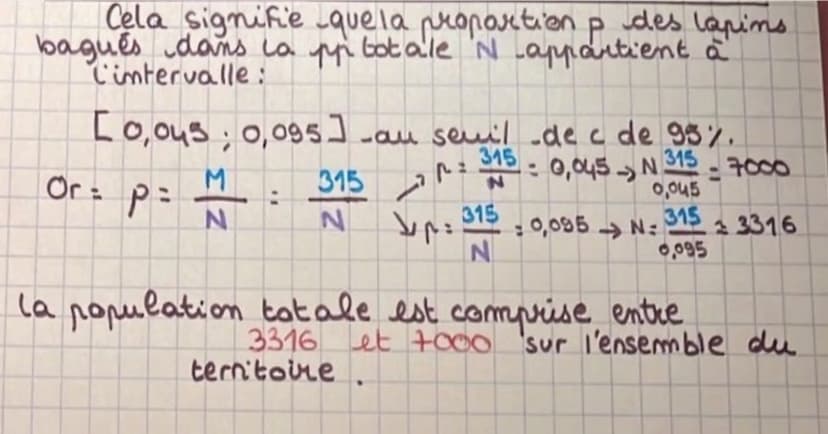 Cela signifie que la proportion p des lapins
bagués dans la pp totale N appartient à
l'intervalle :
[0,045 ; 0,095] au seuil de c de 95%.
Or : p = M/N = 315/N ↗ p = 315/N = 0,045 → N 315/0,045 = 7000
↘ p = 315/N = 0,095 → N = 315/0,095 ≈ 3316
la population totale est comprise entre
3316 et 7000 sur l'ensemble du
territoire.